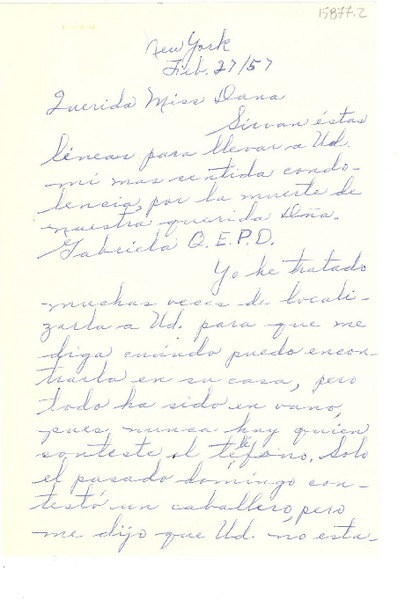 15877.2
New York
Feb. 27/57
Querida Miss Dana
Sirvan éstas
líneas para llevar a Ud.
mi mas sentida condo-
lencia, por la muerte de
nuestra querida Dña.
Gabriela Q.E.P.D.
Yo he tratado
muchas veces de locali-
zarla a Ud. para que me
diga cuándo puedo encon-
trarla en su casa, pero
todo ha sido en vano,
pues, nunca hay quien
conteste el teléfono. Solo
el pasado domingo con-
testó un caballero, pero
me dijo que Ud. no esta-